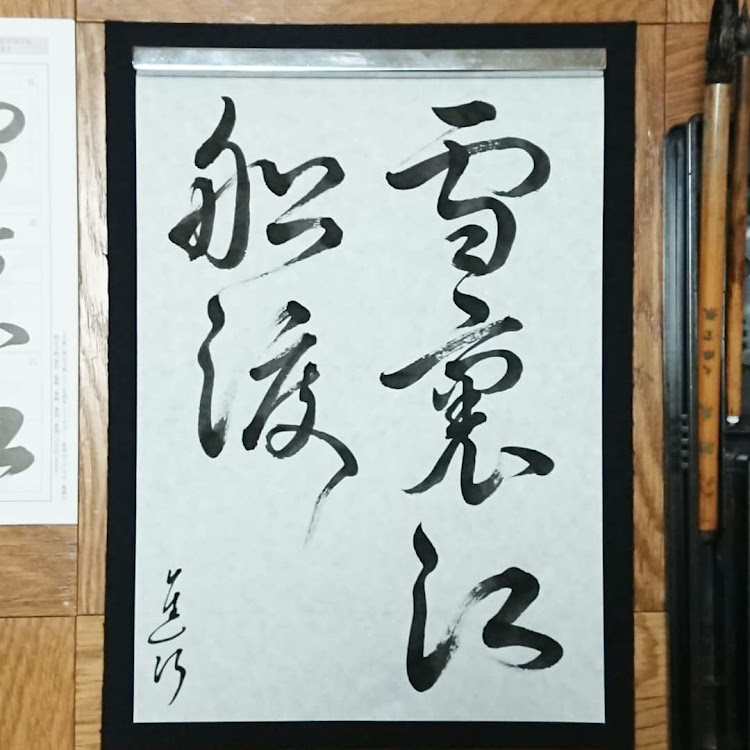 雪裏江
船渡